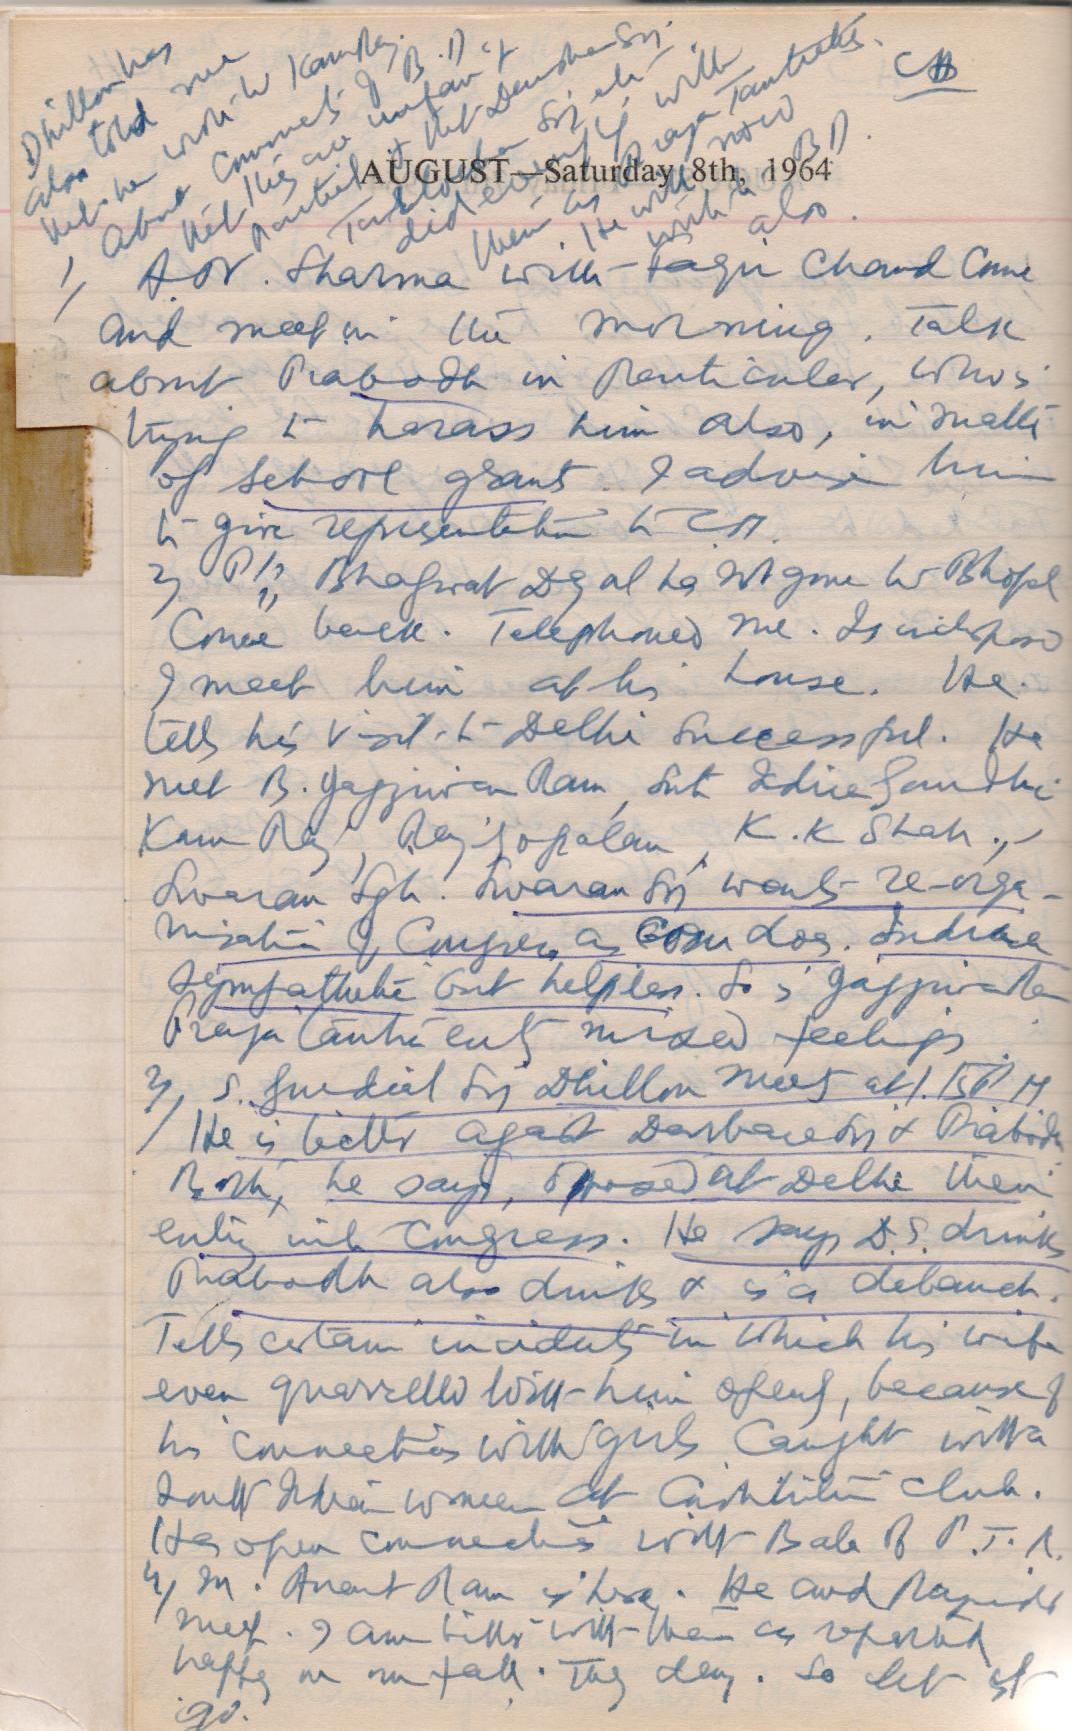 Dhillon has
also told me
that he wrote to Kamraj
about comments of B.D
that they are unfair &
partial & that Darbara Singh
did everything with
them as Praja Tantriks.
He will now
write to B.D.
also.
CM
AUGUST—Saturday 8th, 1964
1, A.N. Sharma with Faqir Chand Come
and meet in the morning. Talk
about Prabodh in particular, who is
trying to harass him also, in matter
of school grant. I advise him
to give representation to CM.
2, Pt. Bhagwat Dyal has not gone to Bhopal
Come back. Telephoned me. Is indisposed
I meet him at his house. He
tells his visit to Delhi successful. He
met B. Jagjiwan Ram, Smt Indira Gandhi
Kam Raj, Rajgopalan, K.K Shah,
Swaran Sgh. Swaran Sgh wants re-orga-
nisation of Congress as Gom does. Indira
sympathetic but helpless. So is Jagjiwan Ram
Praja Tantrients mixed feelings
3, S. Gurdial Sgh Dhillon meets at 1.15 P M
He is bitter against Darbara Sgh & Prabodh
Both, he says, opposed at Delhi their
entry into Congress. He says D.S. drinks
Prabodh also drinks & is a debauch.
Tells certain incidents in which his wife
even quarrelled with him openly, because of
his connections with girls. Caught with a
South Indian woman at Constitution Club.
Has open connections with Bala of P.T.I.
4, M. Anant Ram is here. He and
meet. I am bitter with them as reported
happy on my fall. They deny. So let it
go.